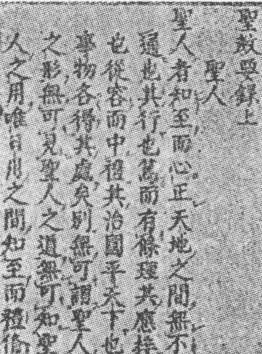 聖敎要錄上
聖人
聖人者知至而心正天地之間無不
通也其行也篤而有條理其應接
也從容而中禮其治國平天下也
事物各得其處矣別無可謂聖人
之形無可見聖人之道無可知聖
人之用唯日用之間知至而禮備